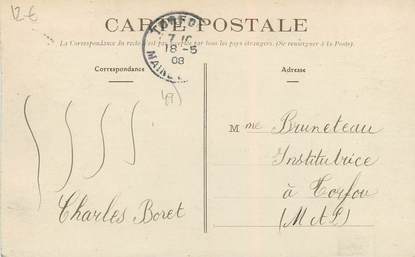 12-€
CARTE POSTALE
La Correspondance du recto n'est pas acceptée par tous les pays étrangers. (Se renseigner à la Poste).
TORFOU
7 10
18 -5
08
MAINE
Correspondance
Adresse
(49)
Mme Bruneteau
Institutrice
à Torfou
(M & L)
Charles Boret